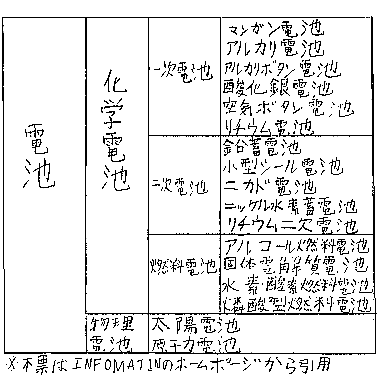 電池
化学電池
一次電池
マンガン電池
アルカリ電池
アルカリボタン電池
酸化銀電池
空気ボタン電池
リチウム電池
二次電池
鉛蓄電池
小型シール電池
ニカド電池
ニッケル水素蓄電池
リチウム二次電池
燃料電池
アルコール燃料電池
固体電解質電池
水素酸素燃料電池
燐酸型燃料電池
物理
電池
太陽電池
原子力電池
※本票はINFOMATINのホームページから引用